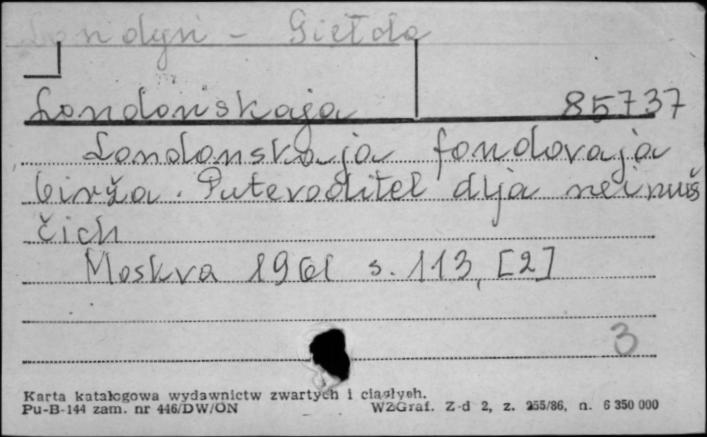 Londyn - Giełda
Londonskaja 85737
Londonskaja fondovaja
birža. Putevoditel dlja neimuš
čich
Moskva 1961 s. 113, [2]
3
Karta katalogowa wydawnictw zwartych i ciągłych.
Pu-B-144 zam. nr 446/DW/ON WZGraf. Z-d 2, z. 955/86, n. 6 350 000